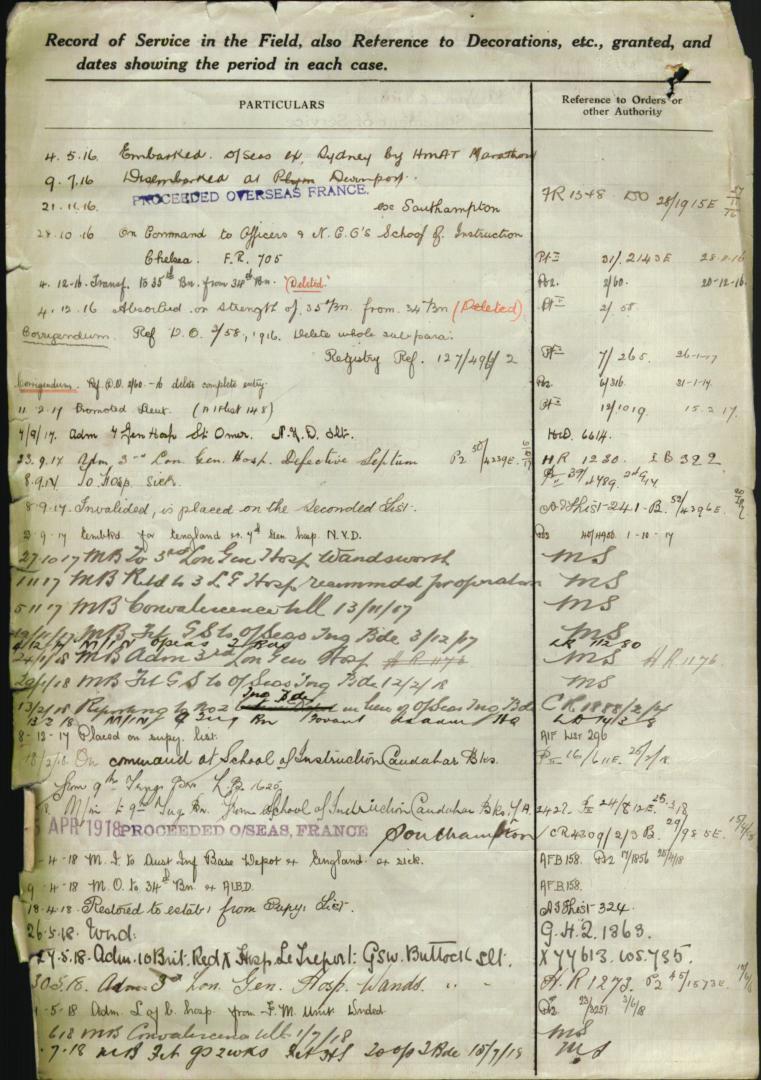 Record of Service in the Field, also Reference to Decorations, etc., granted, and
dates showing the period in each case.
PARTICULARS
Reference to Orders or
other Authority
4.5.16. Embarked. O/seas ex. Sydney by HMAT Marathon
9.7.16 Disembarked at Plym Devonport.
PROCEEDED OVERSEAS FRANCE.
21.11.16. exe Southampton
FR 1348 DO 28/1915E
28.10.16 On Command to Officers & N.C.O's School of Instruction
Chelsea. F.R. 705
31/2143E 28.11.16
4.12.16. Transf. to 35th Bn. from 34th Bn. "Deleted."
Po2. 2/60. 20-12-16.
4.12.16 Absorbed on strength of 35 Bn. from 34 Bn (Deleted)
Pt II 2/58
Corrigendum. Ref D.O. 2/58, 1916. Delete whole sub para:
Registry Ref. 127/496/2
7/265. 26-1-17
Corrigendum. Ref. D.O. 2/60 -16 delete complete entry.
Po2. 6/316. 31-1-17.
11.2.17 Promoted Lieut. (A I F list 148)
12/1019. 15.2.17.
7/9/17. Adm 7 Gen Hosp St. Omer. N.Y.D. Slt.
HRD. 6614.
23.9.17 Adm 3rd Lon. Gen. Hosp. Defective Septum P2 50/4239E.
HR 1230. IB 322
8.9.17 To Hosp. Sick.
39/4789
8-9-17 Invalided, is placed on the Seconded List.
A I F list-241-B. 52/4396E.
9.17 Embkd. for England ex. 7th Gen hosp. N.Y.D.
Po2 40/4950. 1-10-17
27.10.17 MB To 3rd Lon Gen Hosp Wandsworth
MS
1.11.17 MB Retd to 3 L G Hosp recommdd for operation
MS
5.11.17 MB Convalescence till 13/11/17
MS
MB Fit G S to O/Seas Tng Bde 3/12/17
MS
4/12/17 M/IN O/seas
LR 11280
24/1/18 MB Adm 3rd Lon Gen Hosp HR 1176
MS HR 1176
MB Fit G S to O/Seas Tng Bde 12/2/18
MS
13/2/18 Reporting to No 2 Tng Bde in lieu of O/Seas Tng Bde
CR 1888/2/4
13.2.18 M/IN 9 Tng Bn Fovant
8-12-17 Placed on supy. list.
AIF LIST 296
18/2/18 On command at School of Instruction Candahar Bks.
16/611E.
from 9th Trng. Bn. L.B. 1620
M/in to 9th Tng Bn. from School of Instruction Candahar Bks. T/A.
2422. 24/812E.
APR 1918 PROCEEDED O/SEAS, FRANCE Southampton
CR4309/2/3 B. 29/985E.
-4-18 M. I to Aust Inf Base Depot ex England ex sick.
AFB 158. Po2 17/1856 25/4/18
9-4-18 M.O. to 34th Bn. ex AIBD.
AFB 158.
18.4.18. Restored to estab: from Supy: List.
A I F list-324.
26.5.18. Wnd.
G.H.Q. 1863.
27.5.18. Adm. 10 Brit. Red X Hosp. Le Treport: GSW. Buttock Slt.
X 77613. COS.735.
30.5.18. Adm 3rd Lon. Gen. Hosp. Wands. " "
H.R 1273. P2 45/1573E.
-5-18 Adm. L of C. hosp. from F.M. Unit Wnded.
Po2. 23/3251 3/6/18
6 6 18 MB Convalescence till 1/7/18
MS
.7.18 MB Fit GS 2 wks Fit HS 2 Bde 15/7/18
MS